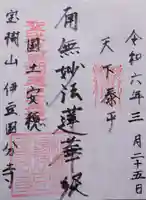 令和六年三月二十五日
天下泰平
南無妙法蓮華経
国土安穏
宝樹山 伊豆国分寺